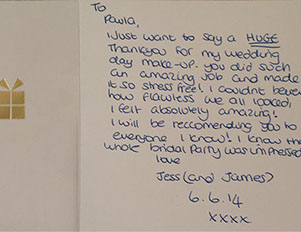 To
Paula,
I Just want to say a HUGE
Thankyou for my wedding
day make-up. you did such
an amazing job and made
it so stress free! I couldnt believe
how flawless we all looked,
I felt absolutely amazing!
I will be reccomending you to
everyone I know! I know the
whole bridal Party was impressed
love
Jess (and James)
6.6.14
xxxx